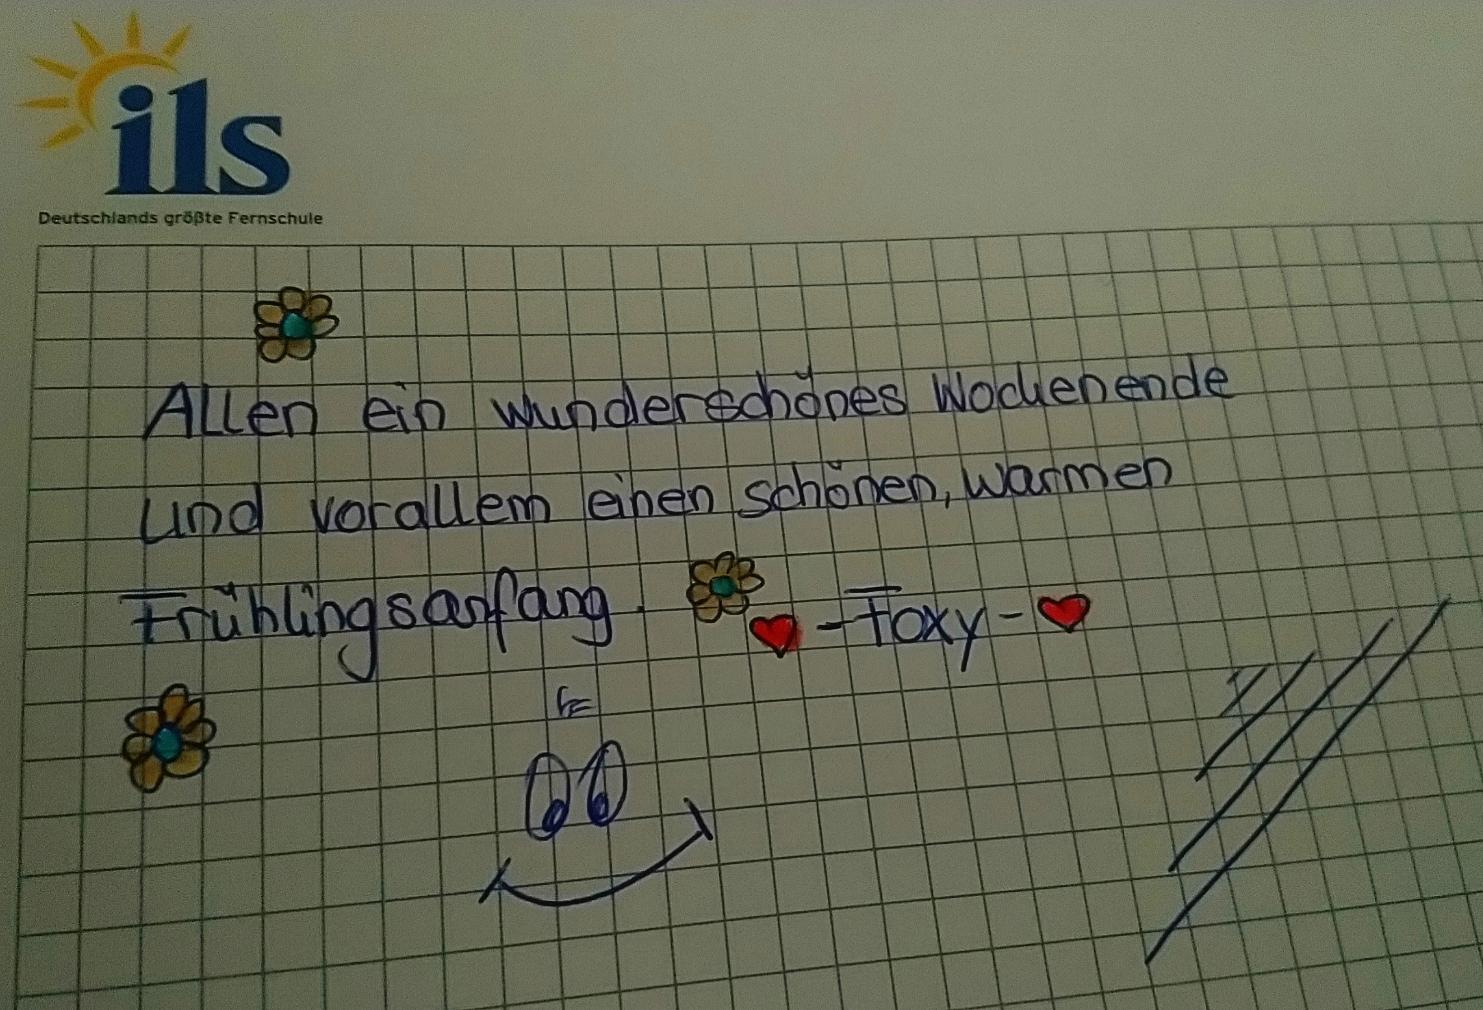 ils
Deutschlands größte Fernschule
Allen ein wunderschönes Wochenende
und vorallem einen schönen, warmen
Frühlingsanfang.
-Foxy-